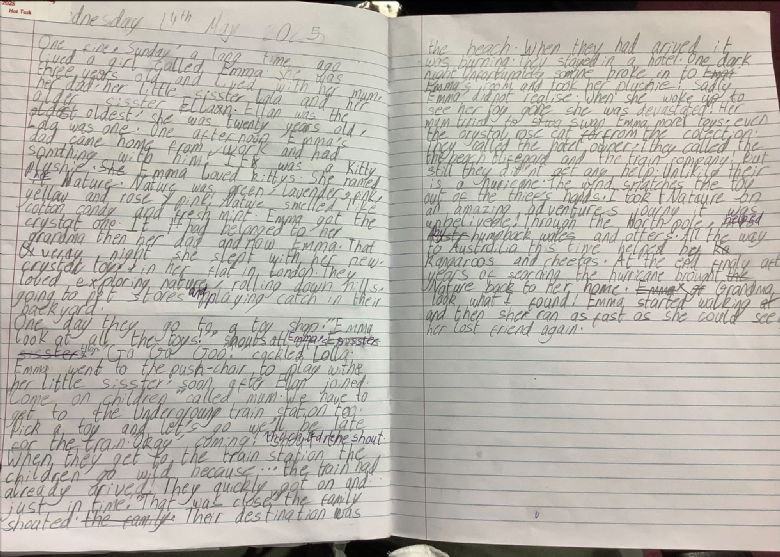 Hot Task
dnesday 14th May 2025
One fine, Sunday a long time ago
lived a girl called Emma. She was
three years old and lived with her mum,
her dad her little sisster Lola and her
older sisster Ellaxn. Ellan was the
oldest oldest, she was twenty years old,
Lola was one. One afternoon Emma's
dad came home from work and had
somthing with him! It was a Kitty
plushie. She Emma Loved kittys. She named
it Nature. Nature was green, lavender, pink,
yellaw and rose pink, Nature smelled of
cotton candy and fresh mint. Emma got the
crystal one. It had belonged to her
grandma then her dad and now Emma. That
very night she slept with her new
crystel toy in her flat in London. They
loved exploring nature, rolling down hills,
going to pet stores and playing catch in their
backyard.
One day they go to a toy shop. "Emma
look at all the toys!" shouts Emma's
sisster "Ga Ga Goo!" cackled Lolla.
Emma went to the push-chair to play withe
her little sisster. soon after Ellan joined.
"Come on children" called mum "We have to
get to the Underground train station too.
Pick a toy and let's go we'll be late
for the train." Okay, coming! the children shout.
When they get to the train station the
children go wild because... the train had
already arived! They quickly got on and
just in time. "That was close" the family
shoated. the family. Their destination was
the beach. When they had arived it
was burning. they stayed in a hotel. One dark
night Unfortunately somone broke in to
Emma's room and took her plushie! Sadly
Emma did not realise. When she woke up to
see her toy gone she was devastated. Her
mum tried to swap Emma more toys: even
the crystal rose cat from the colection.
They called the hotel owner; they called the
the beach lifegaurd and the train company: but
still they didn't get any help. Unlikily their
is a huricane. The wind snatches the toy
out of the thiefs hands. I took Nature on
an amazing adventure's Journy it was
unbeliveble; Through the North pole, helped
humpback wales and otters. All the way
to Australia this time helped
Kangaroos and cheetas. At the end finaly aft
years of searching the hurricane brought the
Nature back to her home. Grandma,
look what I found! Emma started walking
and then she ran as fast as she could see
her lost friend again.